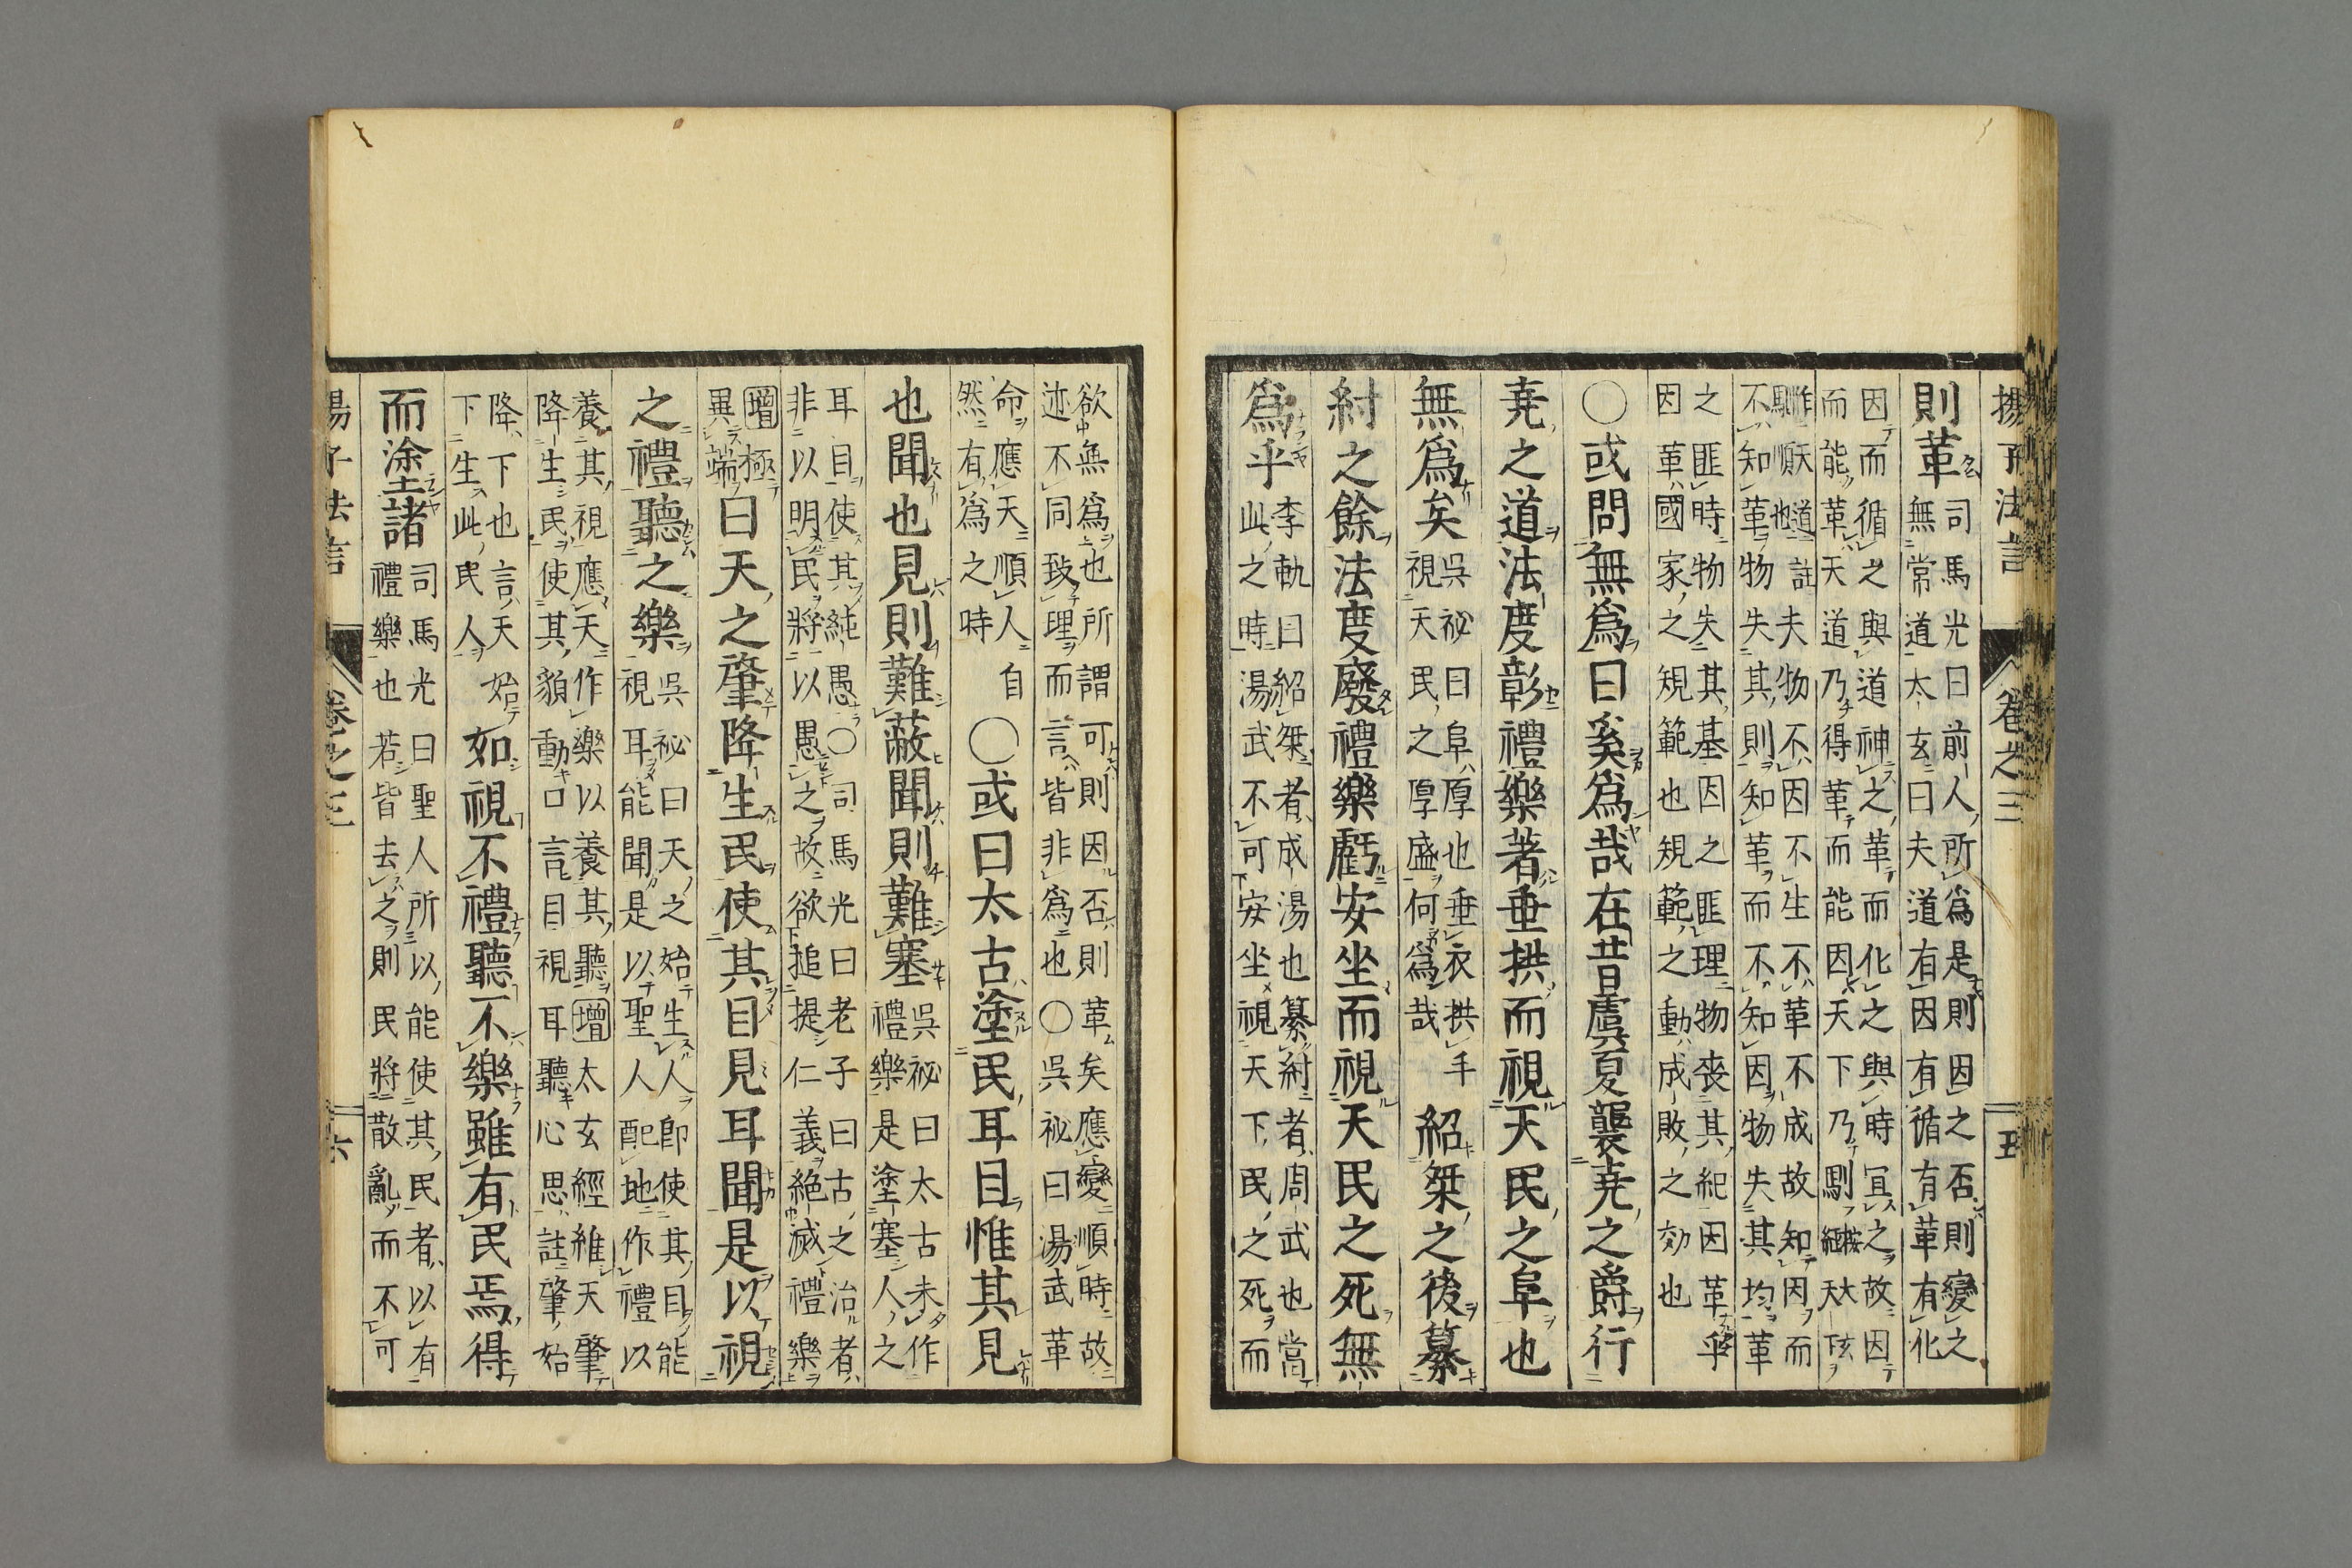 揚子法言 卷之三 五
則革
司馬光曰前人所爲是則因之否則變之
無常道太玄曰夫道有因有循有革有化
因而循之與道神之革而化之與時冝之故因
而能革天道乃得革而能因天下乃馴
夫物不因不生不革不成故知因而
不知革物失其則知革而不知因物失其均革
之匪時物失其基因之匪理物喪其紀因革乎
因革國家之規範也規範之動成敗之効也
〇或問無爲曰奚爲哉在昔虞夏襲堯之爵行
堯之道法度彰禮樂著垂拱而視天民之阜也
無爲矣
吳祕曰阜厚也垂衣拱手
視天民之厚盛何爲哉
紹桀之後纂
紂之餘法度廢禮樂虧安坐而視天民之死無
爲乎
李軌曰紹桀者成湯也纂紂者周武也當
此之時湯武不可安坐視天下民之死而
欲無爲也所謂可則因否則革矣應變順時故
迹不同致理而言皆非爲也〇吳祕曰湯武革
命應天順人自
然有爲之時
〇或曰太古塗民耳目惟其見
也聞也見則難蔽聞則難塞
吳祕曰太古未作
禮樂是塗塞人之
耳目使其純愚〇司馬光曰老子曰古之治者
非以明民將以愚之故欲搥提仁義絶滅禮樂
增極
異端
曰天之肇降生民使其目見耳聞是以視
之禮聽之樂
吳祕曰天之始生人卽使其目能
視耳能聞是以聖人配地作禮以
養其視應天作樂以養其聽增太玄經維天肇
降生民使其貌動口言目視耳聽心思註肇始
降下也言天始
下生此民人
如視不禮聽不樂雖有民焉得
而塗諸
司馬光曰聖人所以能使其民者以有
禮樂也若皆去之則民將散亂而不可
揚子法言 卷之三 六